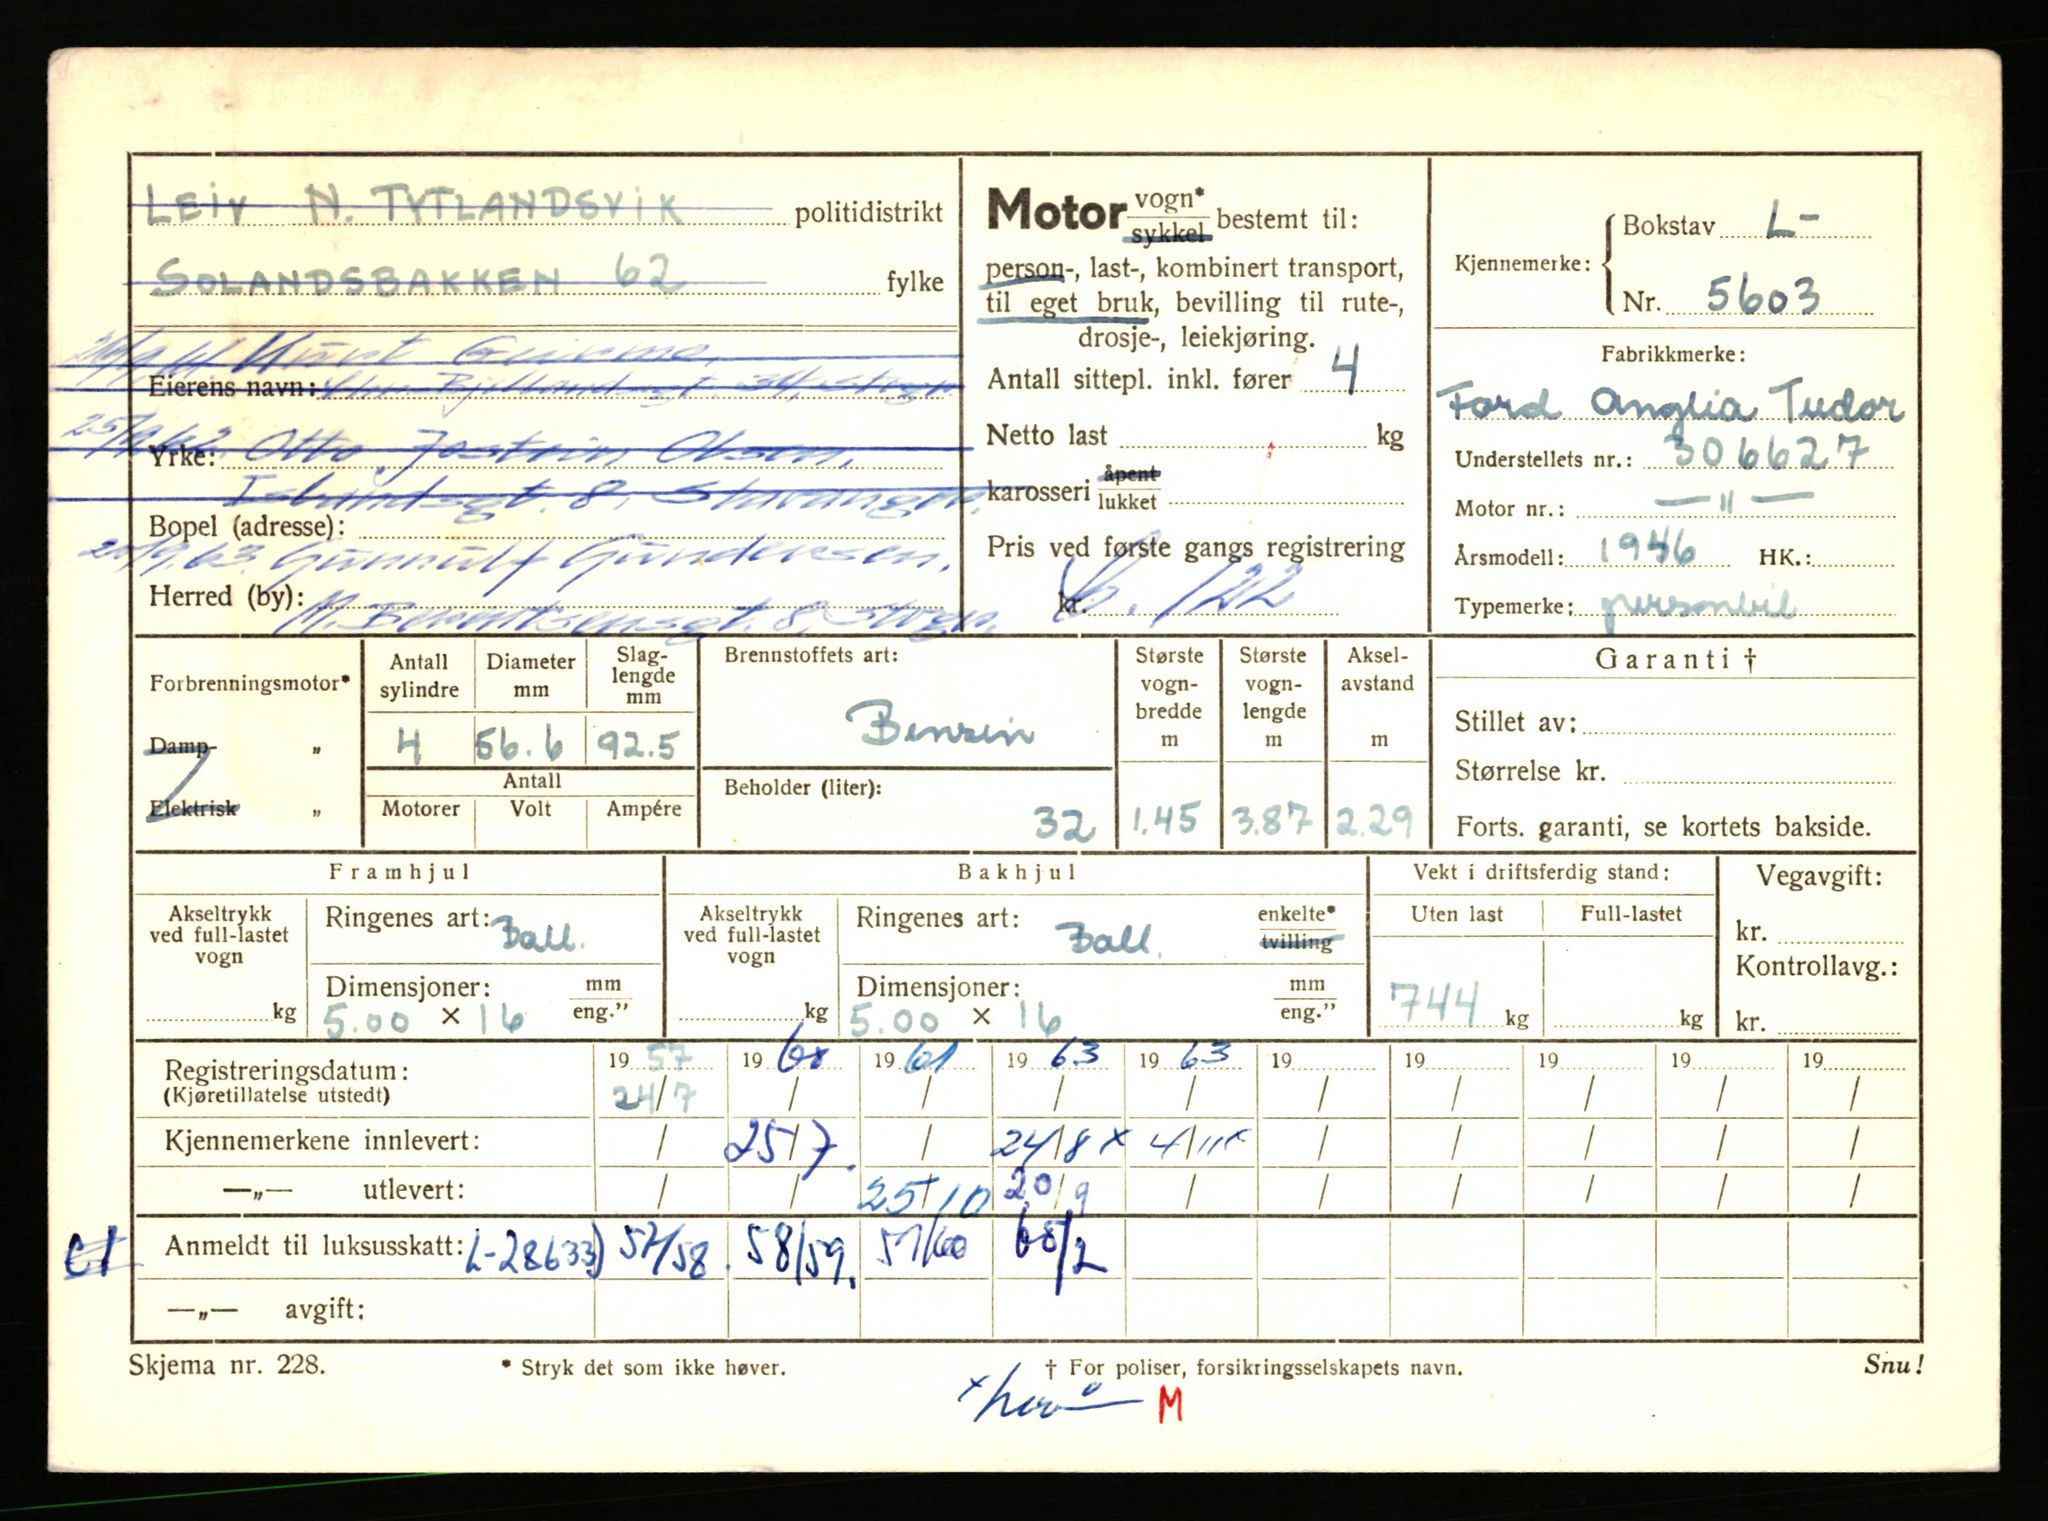 LEIV N. TYTLANDSVIK politidistrikt
SOLANDSBAKKEN 62 fylke
Kurt
Eierens navn: 34, Stvgr.
25/9.62. Otto Olsen,
Yrke:
8, Stavanger.
Bopel (adresse):
20/9.63. Gunnulf Gundersen,
Herred (by): 8, Stvgr.
Motor vogn* sykkel bestemt til:
person-, last-, kombinert transport,
til eget bruk, bevilling til rute-,
drosje-, leiekjøring.
Antall sittepl. inkl. fører 4
Netto last kg
karosseri åpent lukket
Pris ved første gangs registrering
kr. 6.122
Kjennemerke: Bokstav L-
Nr. 5603
Fabrikkmerke:
Ford Anglia Tudor
Understellets nr.: 306627
Motor nr.: — " —
Årsmodell: 1946 HK.:
Typemerke: personbil
Forbrenningsmotor*
Damp- „
Elektrisk „
Antall sylindre 4
Diameter mm 56.6
Slag-lengde mm 92.5
Antall
Motorer Volt Ampére
Brennstoffets art:
Benzin
Beholder (liter):
32
Største vogn-bredde m 1.45
Største vogn-lengde m 3.87
Aksel-avstand m 2.29
Garanti †
Stillet av:
Størrelse kr.
Forts. garanti, se kortets bakside.
Framhjul
Akseltrykk ved full-lastet vogn kg
Ringenes art: Ball.
Dimensjoner: mm eng.”
5.00 × 16
Bakhjul
Akseltrykk ved full-lastet vogn kg
Ringenes art: Ball. enkelte* tvilling
Dimensjoner: mm eng.”
5.00 × 16
Vekt i driftsferdig stand:
Uten last Full-lastet
744 kg kg
Vegavgift:
kr.
Kontrollavg.:
kr.
Registreringsdatum: 19 57 19 60 19 61 19 63 19 63 19 19 19 19 19
(Kjøretillatelse utstedt) 24/7 / / / / / / / / /
Kjennemerkene innlevert: / 25/7. / 24/8 x 4/11 x / / / / /
—„— utlevert: / / 25/10 20/9 / / / / / /
C1 Anmeldt til luksusskatt: L-28633) 57/58. 58/59. 59/60 68/2
—„— avgift:
Skjema nr. 228. * Stryk det som ikke høver. † For poliser, forsikringsselskapets navn. Snu!
M